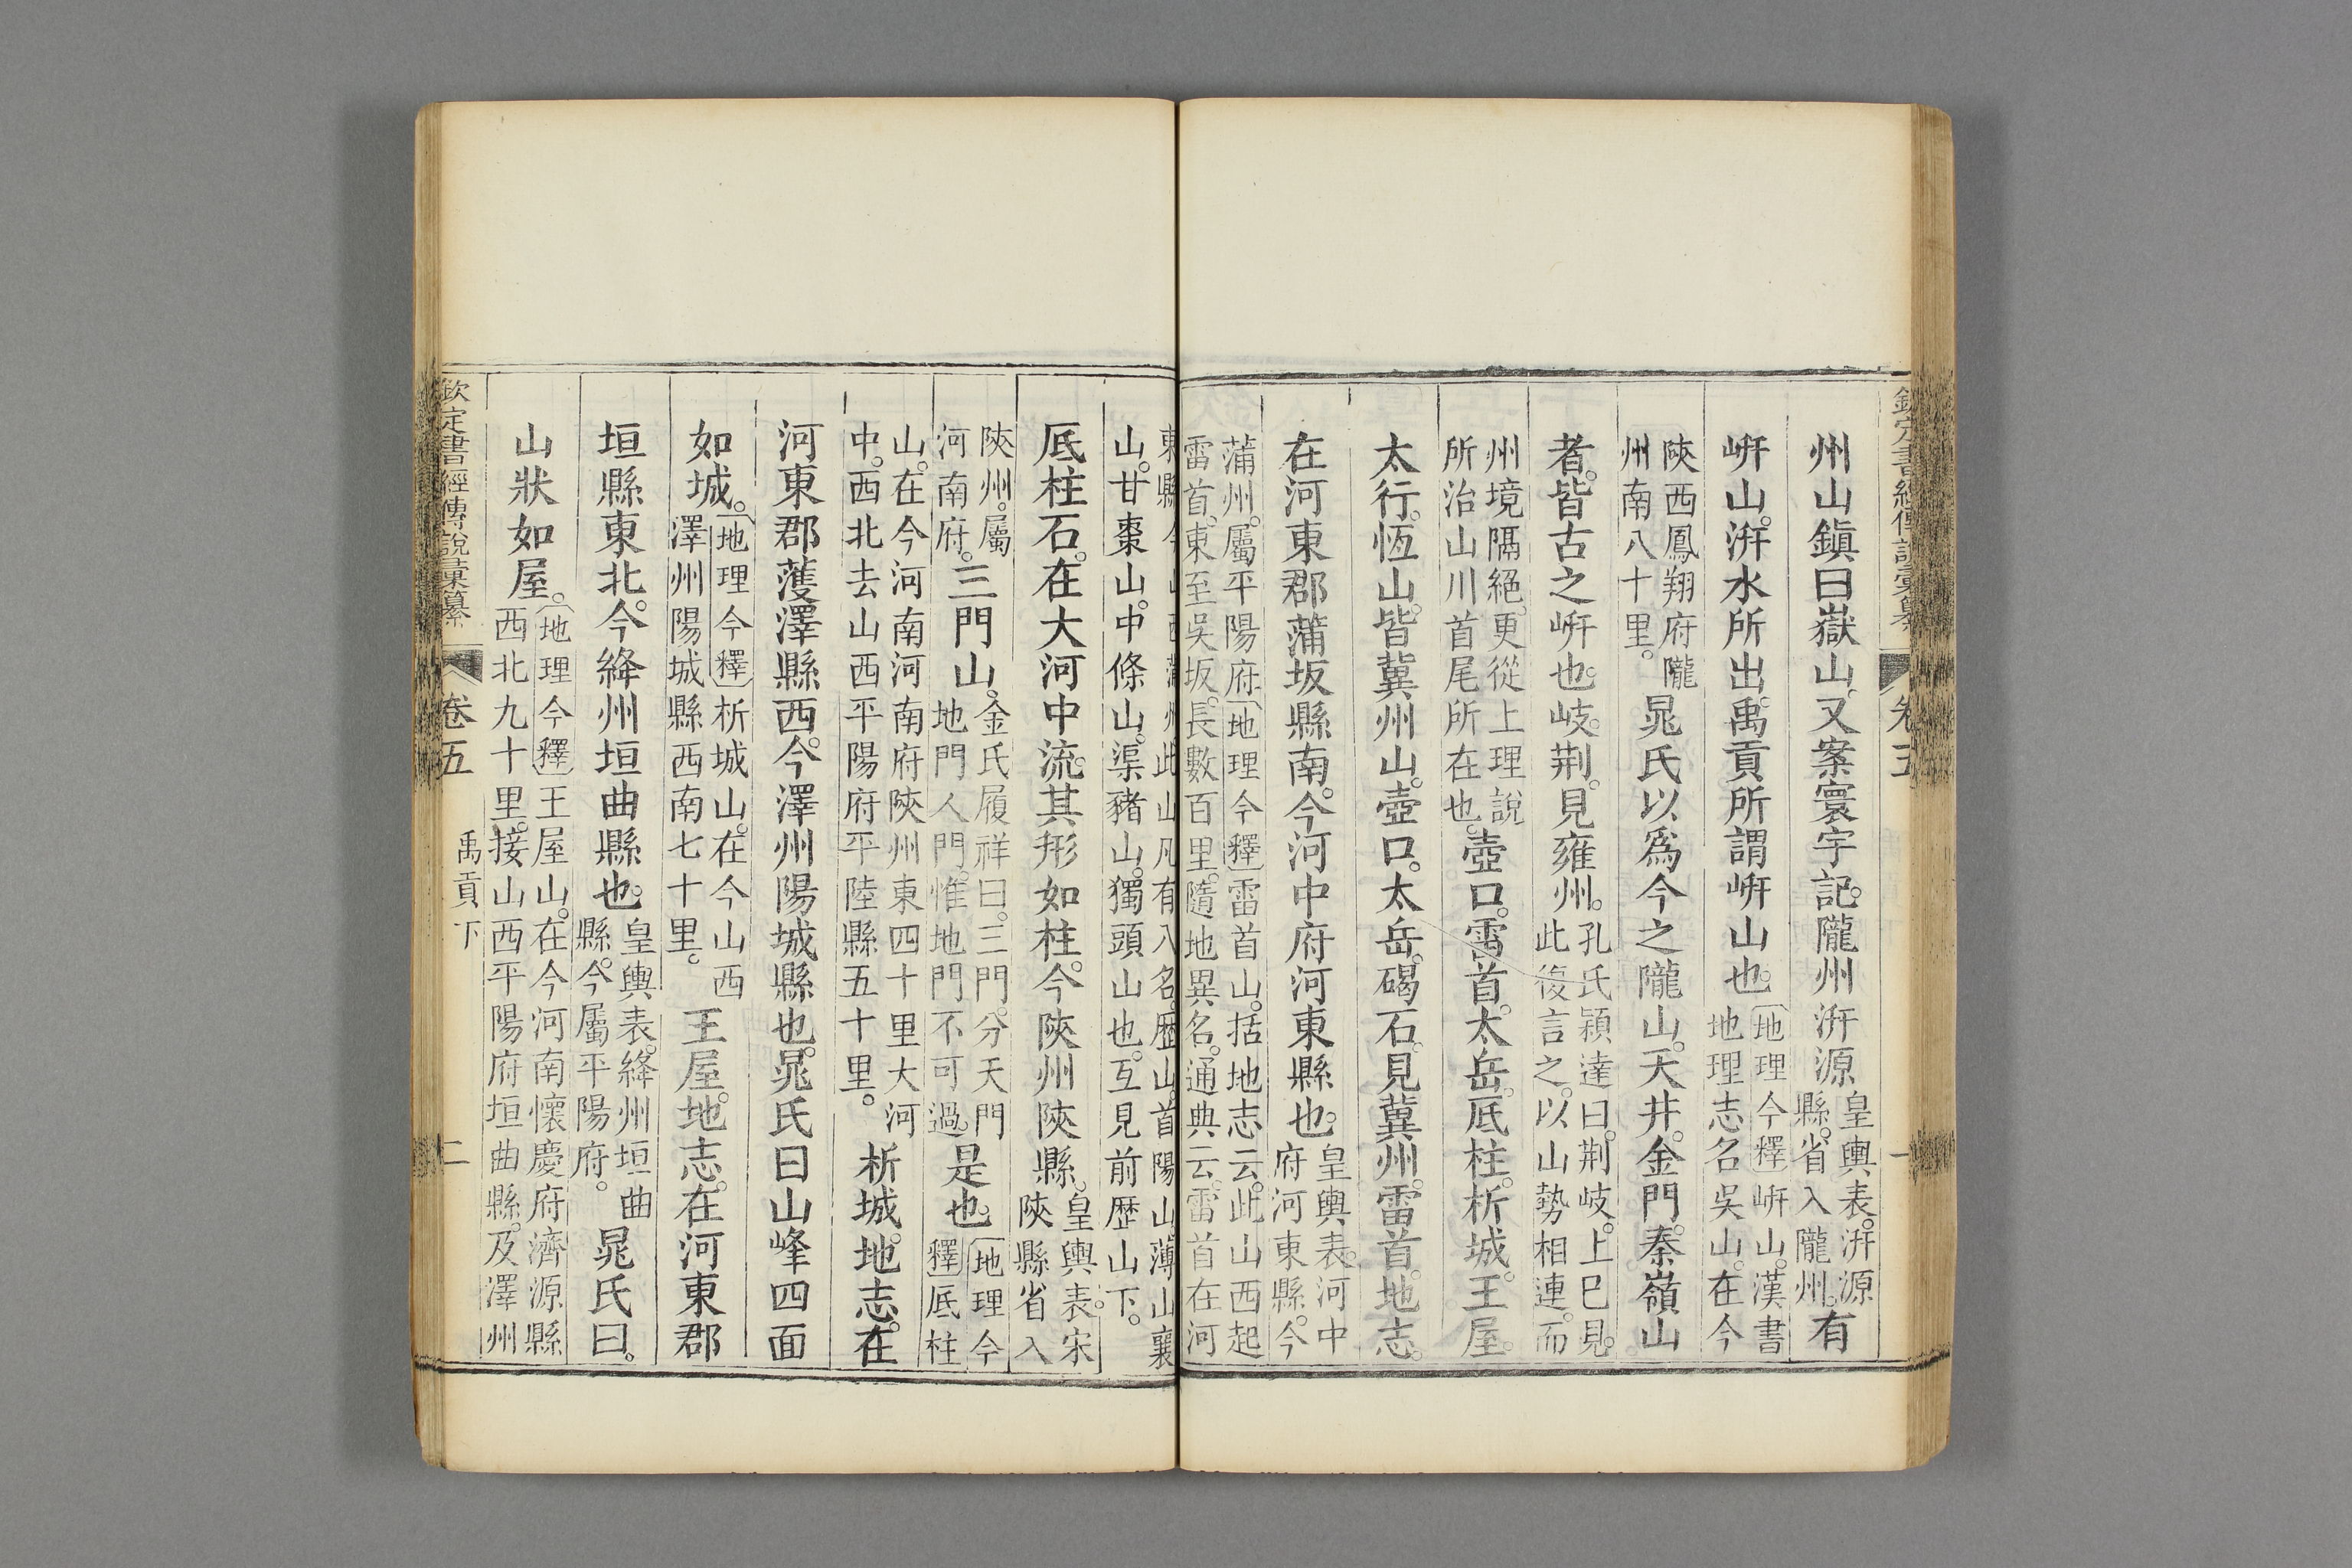 州山鎮曰嶽山。又案寰宇記。隴州汧源皇輿表。汧源縣。省入隴州。有
岍山。汧水所出。禹貢所謂岍山也。地理今釋岍山。漢書地理志名吳山。在今
陝西鳳翔府隴州南八十里。晁氏以爲今之隴山。天井。金門。秦嶺山
者。皆古之岍也。岐。荆。見雍州。孔氏穎達曰。荆岐。上已見。此復言之。以山勢相連。而
州境隔絕。更從上理說所治山川首尾所在也。壺口。雷首。太岳。厎柱。析城。王屋。
太行。恆山。皆冀州山。壺口。太岳。碣石。見冀州。雷首。地志。
在河東郡蒲坂縣南。今河中府河東縣也。皇輿表。河中府河東縣。今
蒲州。屬平陽府。地理今釋雷首山。括地志云。此山西起雷首。東至吳坂。長數百里。隨地異名。通典云。雷首在河
東縣。今山西蒲州。此山凡有八名。歷山。首陽山。薄山。襄山。甘棗山。中條山。渠豬山。獨頭山也。互見前歷山下。
厎柱石。在大河中流。其形如柱。今陝州陝縣。皇輿表。宋陝縣省入
陝州。屬河南府。三門山。金氏履祥曰。三門。分天門地門人門。惟地門不可過。是也。地理今釋厎柱
山。在今河南河南府陝州東四十里大河中。西北去山西平陽府平陸縣五十里。析城。地志。在
河東郡濩澤縣西。今澤州陽城縣也。晁氏曰山峰四面
如城。地理今釋析城山。在今山西澤州陽城縣西南七十里。王屋。地志。在河東郡
垣縣東北。今絳州垣曲縣也。皇輿表。絳州垣曲縣。今屬平陽府。晁氏曰。
山狀如屋。地理今釋王屋山。在今河南懷慶府濟源縣西北九十里。接山西平陽府垣曲縣。及澤州
欽定書經傳說彙纂
卷五
禹貢下
二